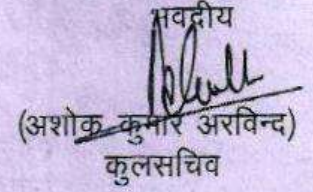 भवदीय
(अशोक कुमार अरविन्द)
कुलसचिव